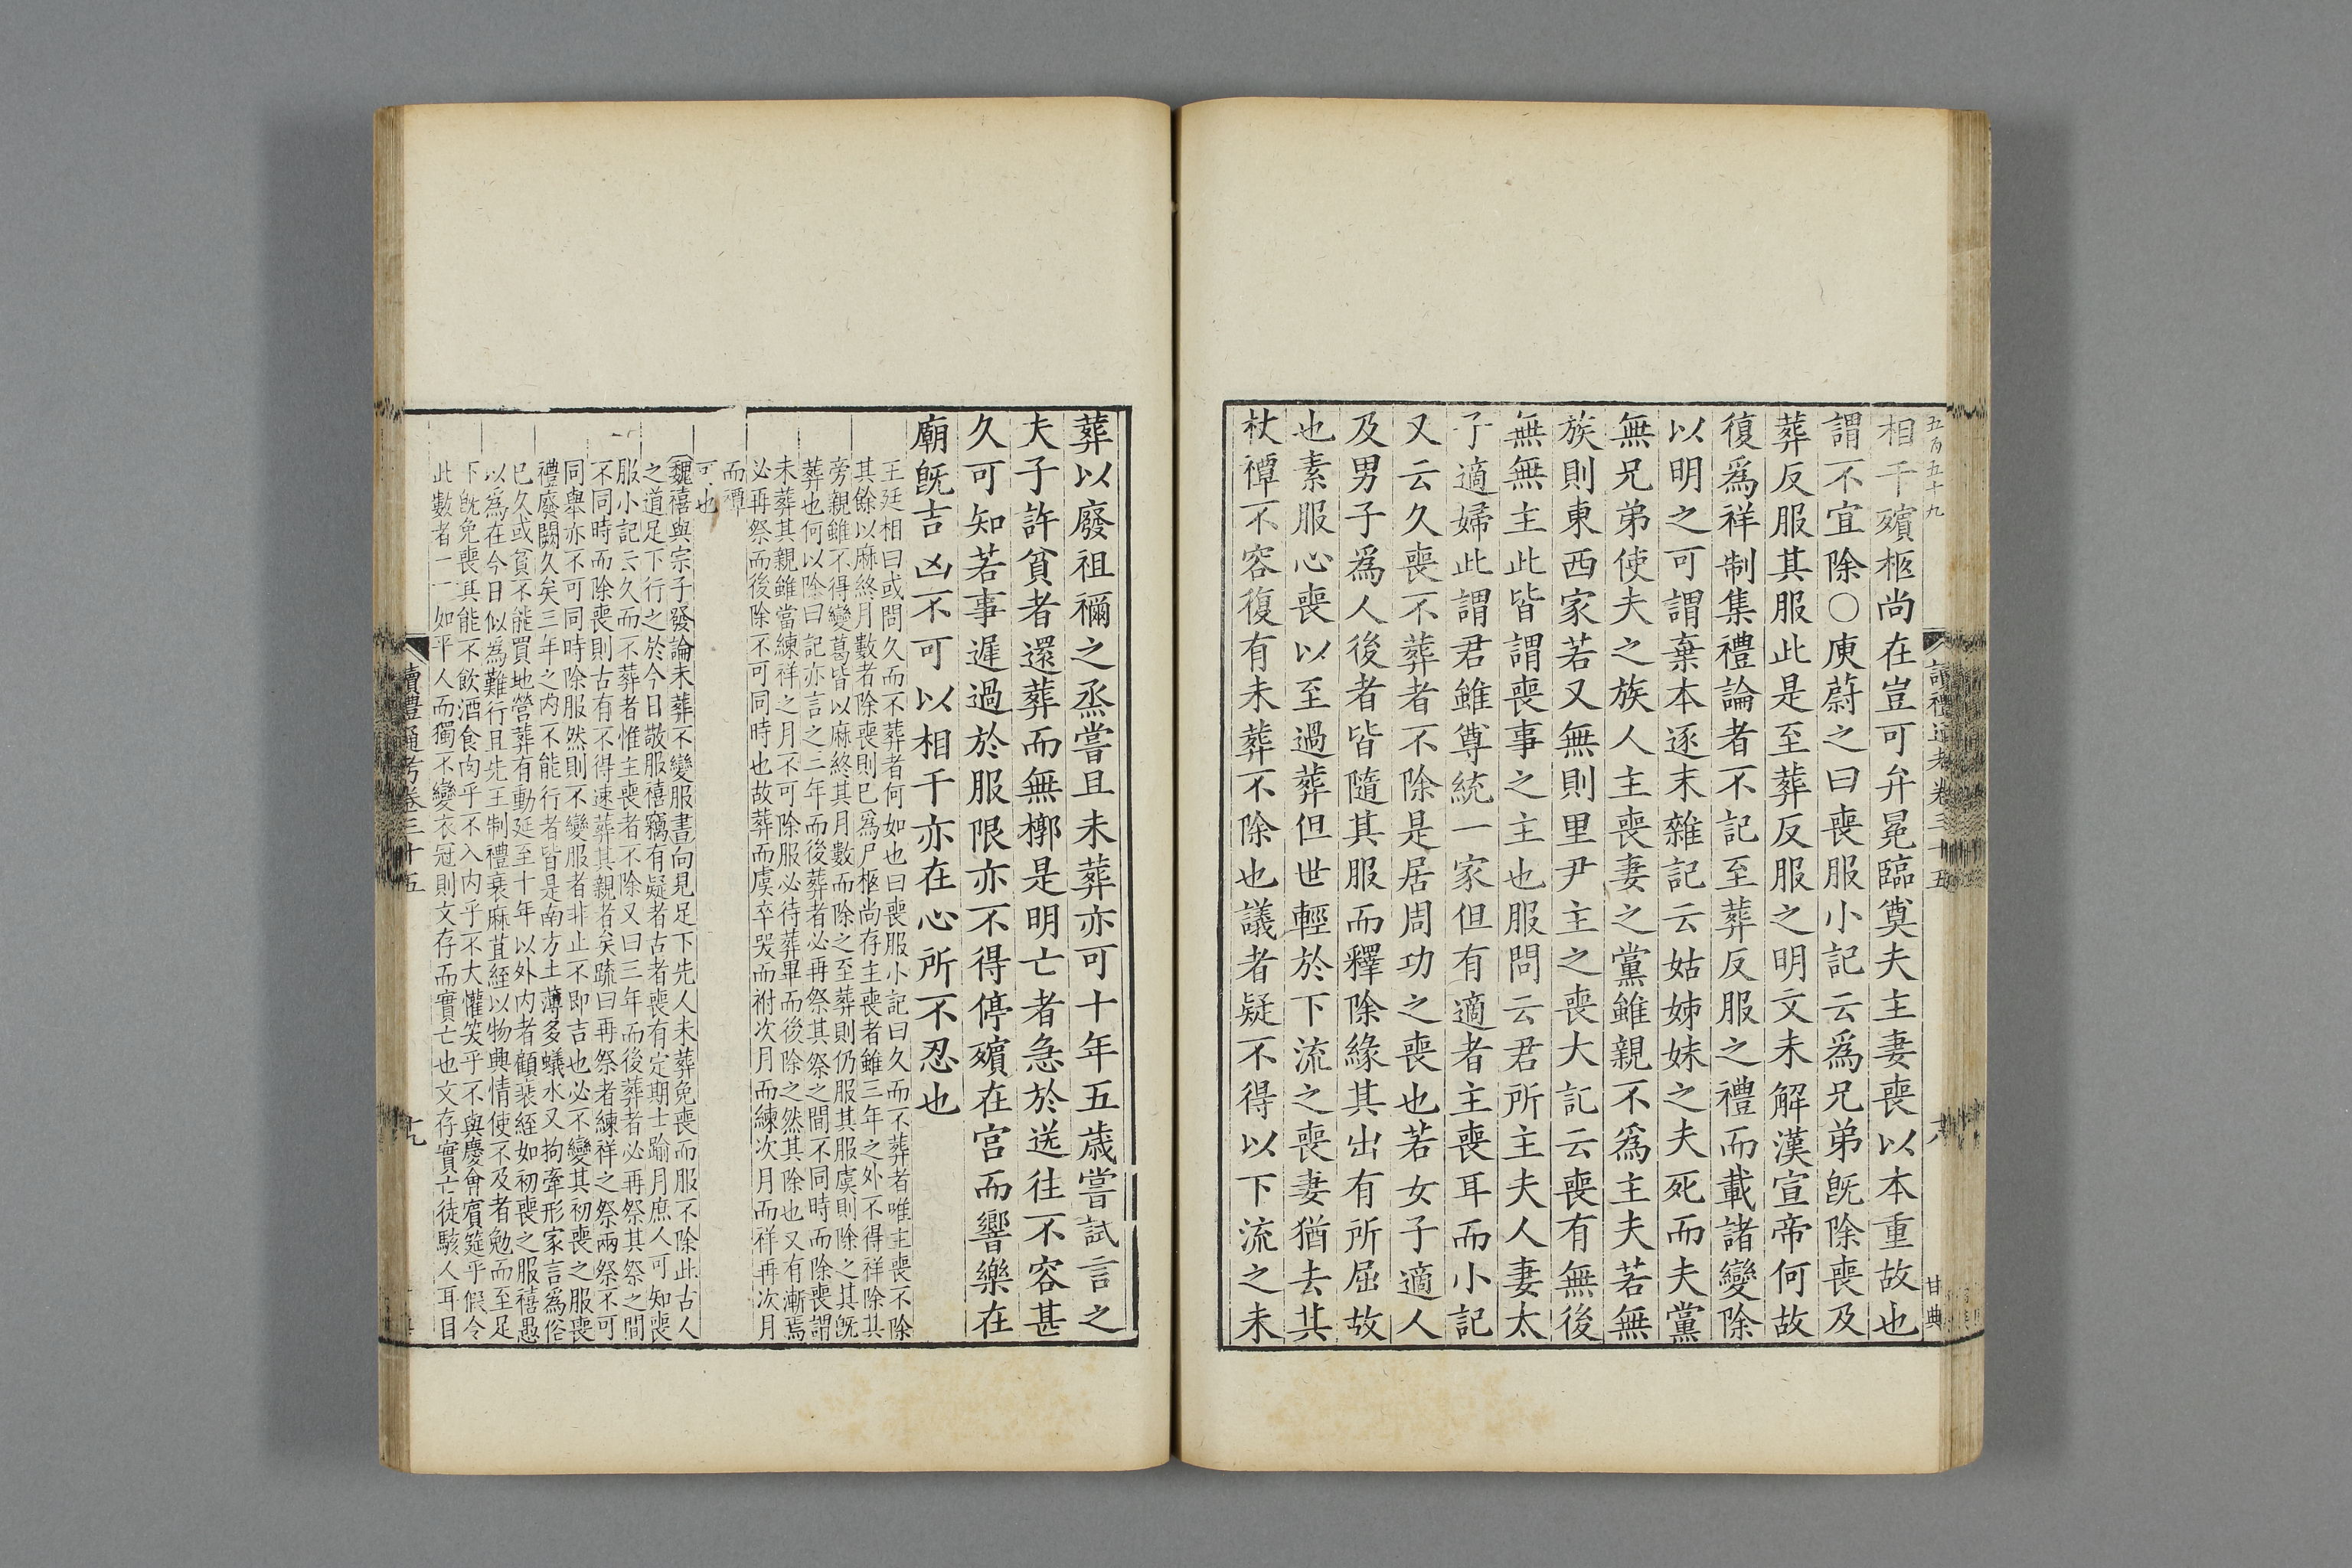 五百五十九
讀禮通考卷三十五
十八
甘典
相干殯柩尚在豈可弁冕臨奠夫主妻喪以本重故也
謂不宜除○庾蔚之曰喪服小記云爲兄弟旣除喪及
葬反服其服此是至葬反服之明文未解漢宣帝何故
復爲祥制集禮論者不記至葬反服之禮而載諸變除
以明之可謂棄本逐末雜記云姑姊妹之夫死而夫黨
無兄弟使夫之族人主喪妻之黨雖親不爲主夫若無
族則東西家若又無則里尹主之喪大記云喪有無後
無無主此皆謂喪事之主也服問云君所主夫人妻太
子適婦此謂君雖尊統一家但有適者主喪耳而小記
又云久喪不葬者不除是居周功之喪也若女子適人
及男子爲人後者皆隨其服而釋除緣其出有所屈故
也素服心喪以至過葬但世輕於下流之喪妻猶去其
杖禫不容復有未葬不除也議者疑不得以下流之未
葬以廢祖禰之烝嘗且未葬亦可十年五歲嘗試言之
夫子許貧者還葬而無槨是明亡者急於送往不容甚
久可知若事遲過於服限亦不得停殯在宮而響樂在
廟旣吉凶不可以相干亦在心所不忍也
王廷相曰或問久而不葬者何如也曰喪服小記曰久而不葬者唯主喪不除
其餘以麻終月數者除喪則已爲尸柩尚存主喪者雖三年之外不得祥除其
旁親雖不得變葛皆以麻終其月數而除之至葬則仍服其服虞則除之其旣
葬也何以除曰記亦言之三年而後葬者必再祭其祭之間不同時而除喪謂
未葬其親雖當練祥之月不可除服必待葬畢而後除之然其除也又有漸焉
必再祭而後除不可同時也故葬而虞卒哭而祔次月而練次月而祥再次月
而禫
可也
魏禧與宗子發論未葬不變服書向見足下先人未葬免喪而服不除此古人
之道足下行之於今日敬服禧竊有疑者古者喪有定期士踰月庶人可知喪
服小記云久而不葬者惟主喪者不除又曰三年而後葬者必再祭其祭之間
不同時而除喪則古有不得速葬其親者矣疏曰再祭者練祥之祭兩祭不可
同舉亦不可同時除服然則不變服者非止不即吉也必不變其初喪之服喪
禮廢闕久矣三年之內不能行者皆是南方土薄多蟻水又拘牽形家言爲俗
巳久或貧不能買地營葬有動延至十年以外內者顧裴絰如初喪之服禧愚
以爲在今日似爲難行且先王制禮衰麻苴絰以物興情使不及者勉而至足
下旣免喪其能不飲酒食肉乎不入內乎不大懽笑乎不與慶會賓筵乎假令
此數者一一如平人而獨不變衣冠則文存而實亡也文存實亡徒駭人耳目
讀禮通考卷三十五
十九